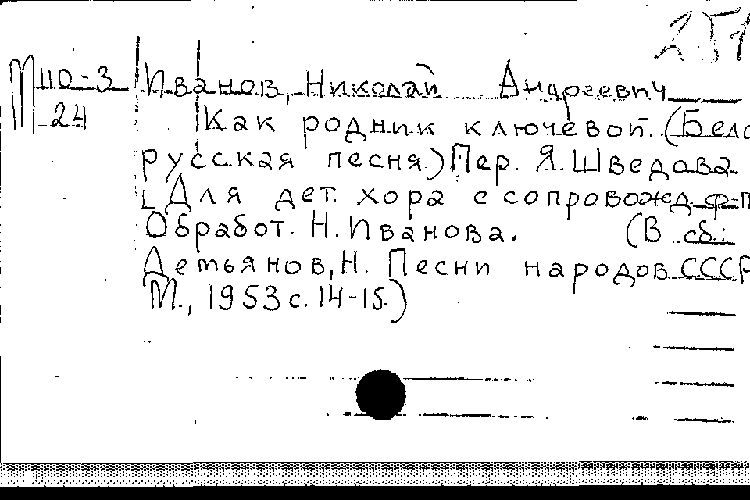 251
М 110-3 Иванов, Николай Андреевич
-24 Как родник ключевой. (Бело
русская песня.) Пер. Я. Шведова.
[Для дет. хора с сопровожд. ф-п
Обработ. Н. Иванова. (В сб.:
Демьянов, Н. Песни народов СССР
М., 1953 с. 14-15.)